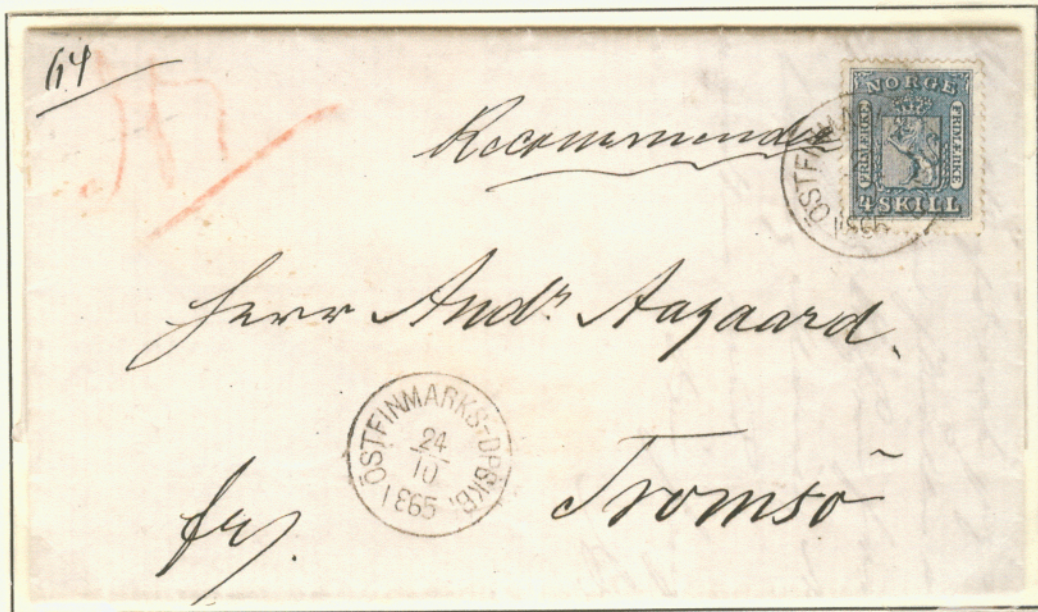 64
Recommendée
NORGE
FRIMÆRKE
FRIMÆRKE
4 SKILL
ÖSTFINMARK
1865
Herr Andr Aagaard.
ÖSTFINMARKS-DPSKB:
24
10
1865
Tromsö
fr.